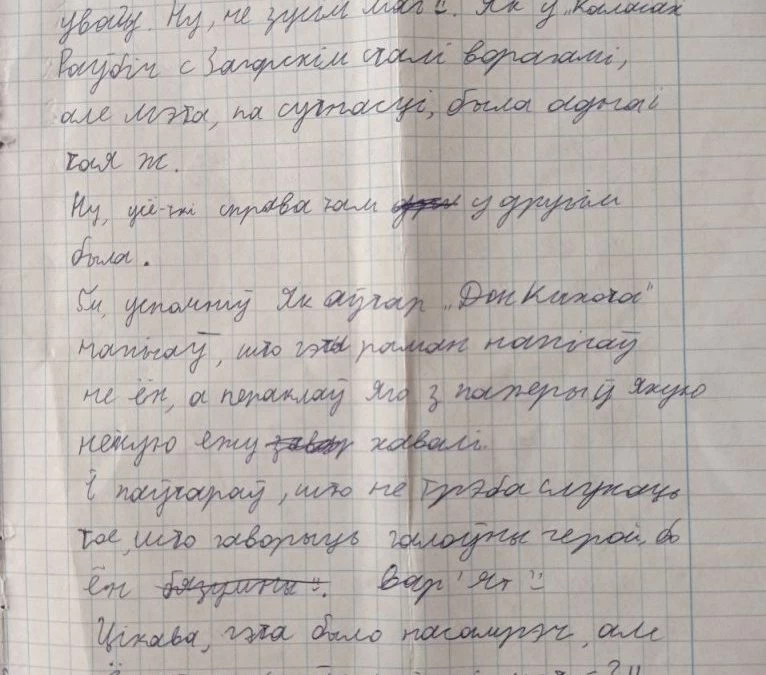 увагу. Ну, не зусім маг с. Як у „Каласах
Раўбіч с Загорскім сталі ворагамі,
але мэта, па сутнасці, была адной і
тая ж.
Ну, усё-ткі справа там у другім
была.
успомніў Як аўтар „Дон Кихота"
напісаў, што гэты раман напісаў
не ён, а пераклаў Яго з паперы ў якую
нейкую ежу хавалі.
І паўтараў, што не трэба слухаць
тое, што гаворыць галоўны герой, бо
ён бязумны". Вар'ят"
Цікава, гэта было насамрэч, але